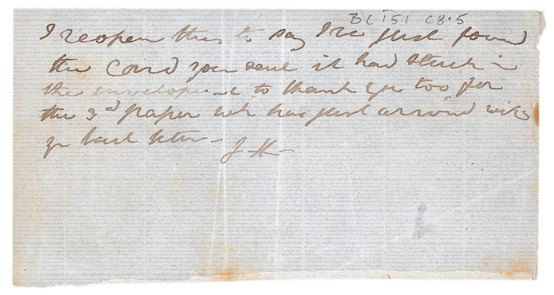 BC 151 CB.5
I reopen this to say I've just found
the Cord you sent it had stuck in
the envelope - & to thank yr too for
the 3rd paper wh has just arrived with
yr last letter -
J H -